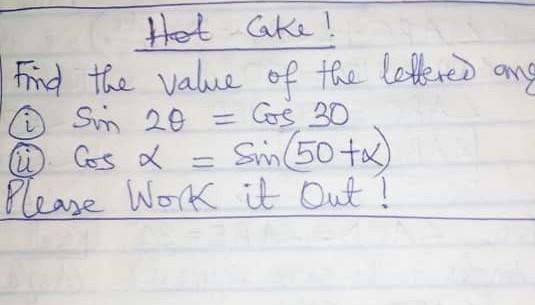 Hot Cake!
Find the value of the lettered ang
(i) Sin 2θ = Cos 30
(ii) Cos α = Sin(50+α)
Please Work it Out!